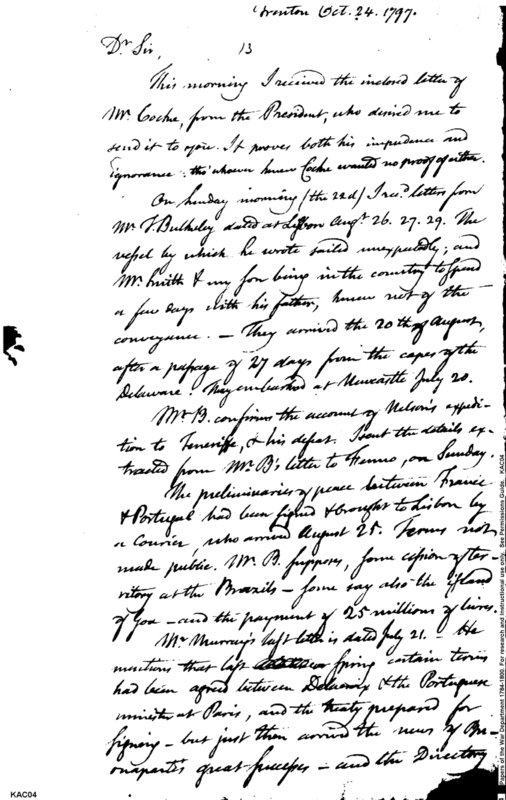 Trenton Oct. 24. 1797.
Dr. Sir,
13
This morning I received the inclosed letter of
Mr. Cocke, from the President, who desired me to
send it to you. It proves both his impudence and
ignorance: tho' whoever knew Cocke wanted no proof of either.
On Sunday morning (the 22d) I recd. letters from
Mr. T. Bulkeley dated at Lisbon Augt. 26. 27. 29. The
vessel by which he wrote sailed unexpectedly; and
Mr. Smith & my son being in the country to spend
a few days with his father, knew not of the
conveyance. — They arrived the 20th of August,
after a passage of 27 days from the capes of the
Delaware. They embarked at Newcastle July 20.
Mr. B. confirms the account of Nelson's expedi-
tion to Teneriffe, & his defeat. I sent the details ex-
tracted from Mr. B's letter to Fenno, on Sunday.
The preliminaries of peace between France
& Portugal had been signed & brought to Lisbon by
a Courier, who arrived August 25. Terms not
made public. Mr. B. supposes, some cession of ter-
ritory at the Brazils — some say also the island
of Goa — and the payment of 25 millions of livres.
Mr. Murray's last letter is dated July 21. — He
mentions that last spring certain terms
had been agreed between Delacroix & the Portuguese
minister at Paris, and the treaty prepared for
signing — but just then arrived the news of Bu-
onaparte's great successes — and the Directory
KAC04
Papers of the War Department 1784-1800. For research and instructional use only. See Permissions Guide. KAC04